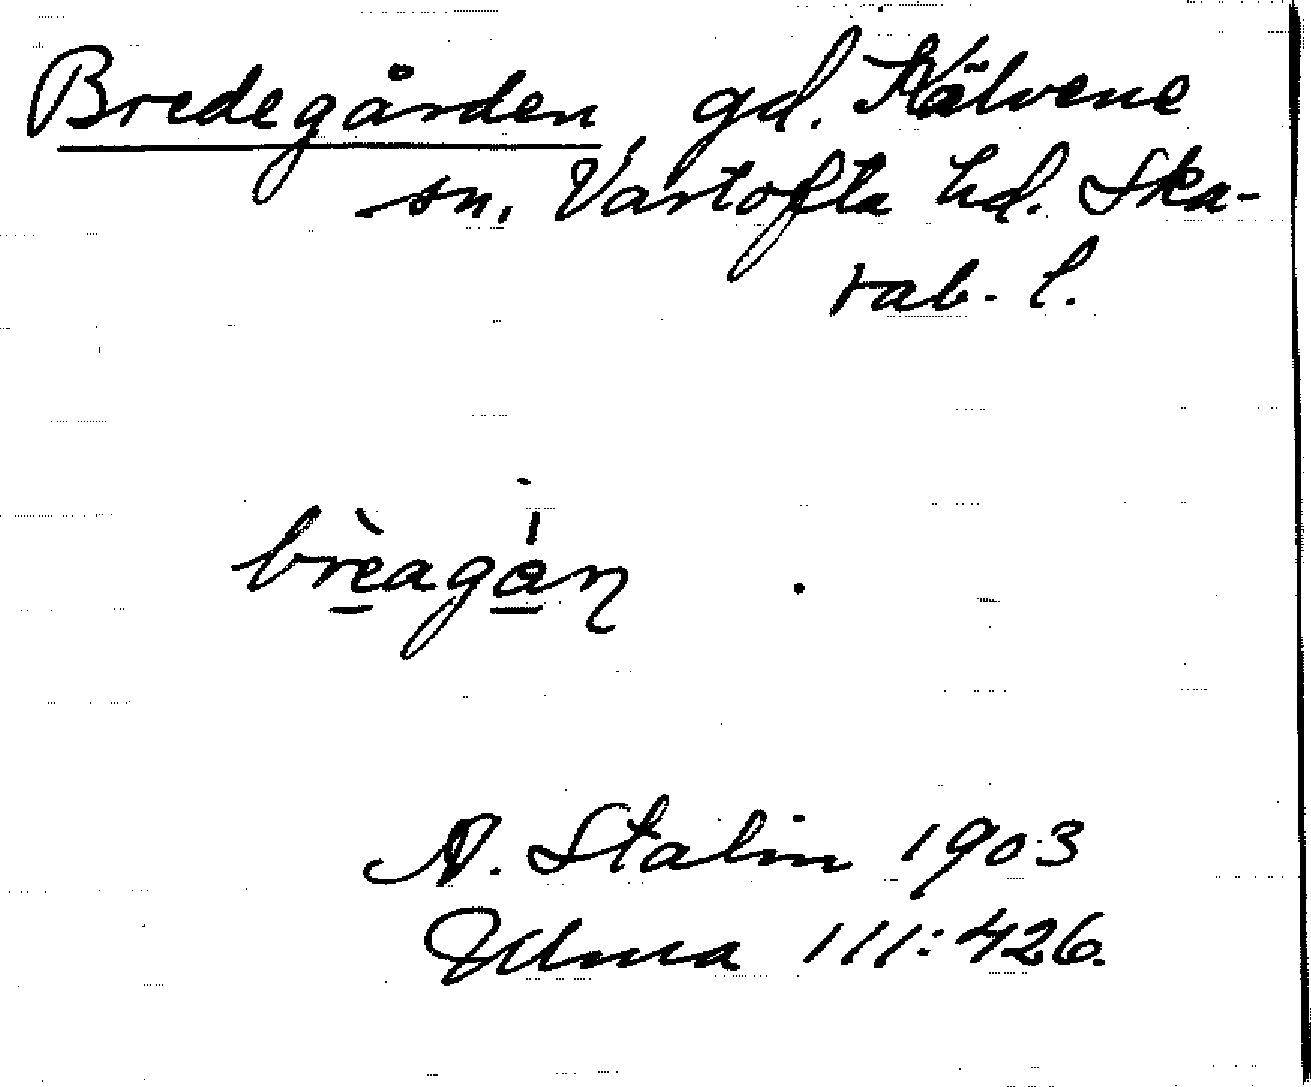 Bredegården gd. Kälvene
sn, Vartofta hd. Ska-
rab. l.
brèagán
A. Stalin 1903
Ulma 111:426.